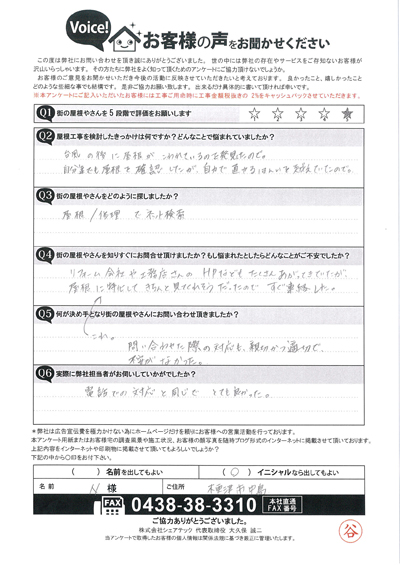 Voice!
お客様の声をお聞かせください
この度は弊社にお問い合わせを頂き誠にありがとうございました。世の中には弊社の存在やサービスをご存知ないお客様が
沢山いらっしゃいます。その方たちに弊社をもっと良く知って頂くためのアンケートにご協力頂けないでしょうか。
お客様のご意見をお聞かせいただき今後の活動に反映させていきたいと考えております。良かったこと、嬉しかったこと
どのような些細な事でも結構です。是非ご協力お願い致します。出来るだけ具体的に書いて頂ければ幸いです。
※本アンケートにご記入いただいたお客様には工事ご用命時に工事金額税抜きの2%をキャッシュバックさせていただきます。
Q1 街の屋根やさんを5段階で評価をお願いします
☆ ☆ ☆ ☆ ★
Q2 屋根工事を検討したきっかけは何ですか?どんなことで悩まれていましたか?
台風の後に屋根がこわれているのを発見したので。
Q3 街の屋根やさんをどのように探しましたか?
屋根/修理 でネット検索
Q4 街の屋根やさんを知りすぐにお問合せ頂けましたか?もし悩まれたとしたらどんなことがご不安でしたか?
リフォーム会社や工務店さんのHPなどもたくさんあがってきていたが、
屋根に特化してきちんと見てくれそうだったのですぐ連絡した。
Q5 何が決め手となり街の屋根やさんにお問い合わせ頂きましたか?
これ。
問い合わせた際の対応も、親切かつ適切で、
Q6 実際に弊社担当者がお伺いしていかがでしたか?
電話での対応と同じで とても良かった。
*弊社は広告宣伝費を極力かけない為にホームページだけを頼りにお客様への営業活動を行っております。
本アンケート用紙またはお客様宅の調査風景や施工状況、お客様の顔写真を随時ブログ形式のインターネットに掲載させて頂いております。
上記内容をインターネットや印刷物に掲載させて頂いてもよろしいでしょうか?
下記の中から〇印をお付け下さい。
( ) 名前を出してもよい
( 〇 ) イニシャルなら出してもよい
名前 N 様
ご住所 木更津市中島
FAX 0438-38-3310 本社直通 FAX番号
ご協力ありがとうございました。
株式会社シェアテック 代表取締役 大久保 誠二
当アンケートで取得したお客様の個人情報は関係法規に基づき厳正に管理いたします。
谷